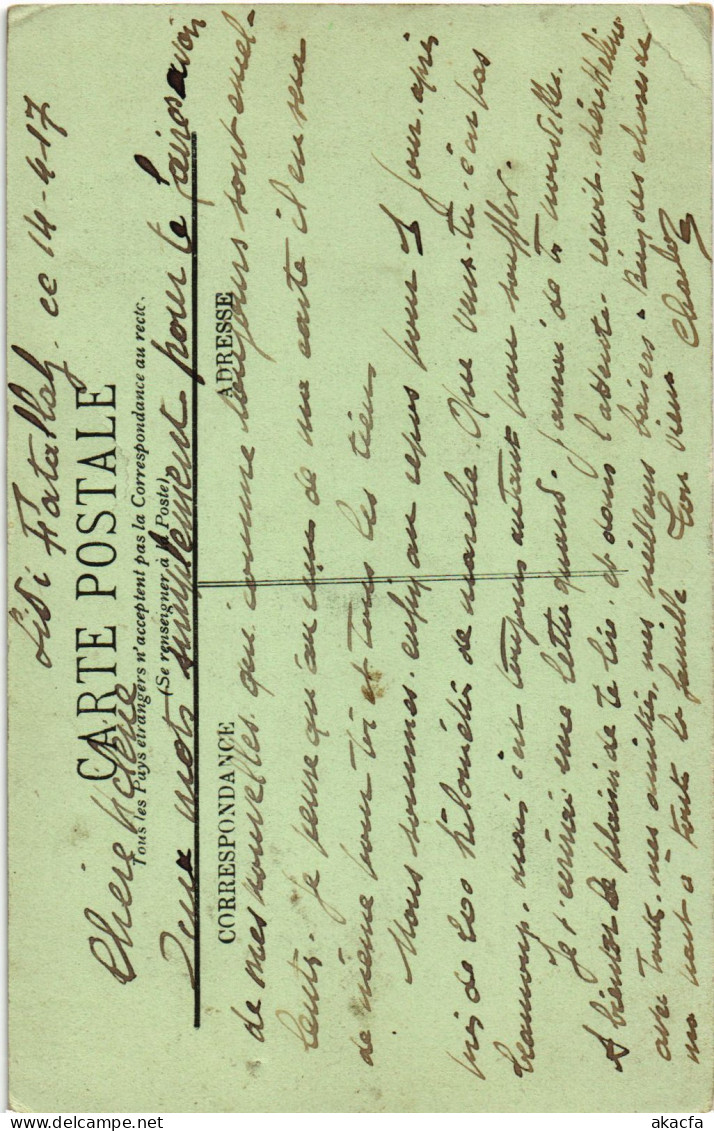 Sidi Fatallah, ce 14-4-17
CARTE POSTALE
Tous les Pays étrangers n'acceptent pas la Correspondance au recto.
(Se renseigner à la Poste)
Chère Hélène
Deux mots simplement pour te faire avoir
CORRESPONDANCE
ADRESSE
de mes nouvelles qui comme toujours sont excel-
lentes. Je pense qu'au reçu de ma carte il en sera
de même pour toi et tous les tiens
Nous sommes enfin au repos pour 1 jour, après
près de 200 kilomètres de marche. Que veux-tu c'est pas
beaucoup, mais c'est toujours autant pour souffler.
Je t'écrirai une lettre quand j'aurai de tes nouvelles.
A bientôt le plaisir de te lire, et dans l'attente reçois chère Hélène
avec toutes mes amitiés, mes meilleurs baisers. Bien des choses de
ma part à toute la famille Ton vieux Charlot
akacfa